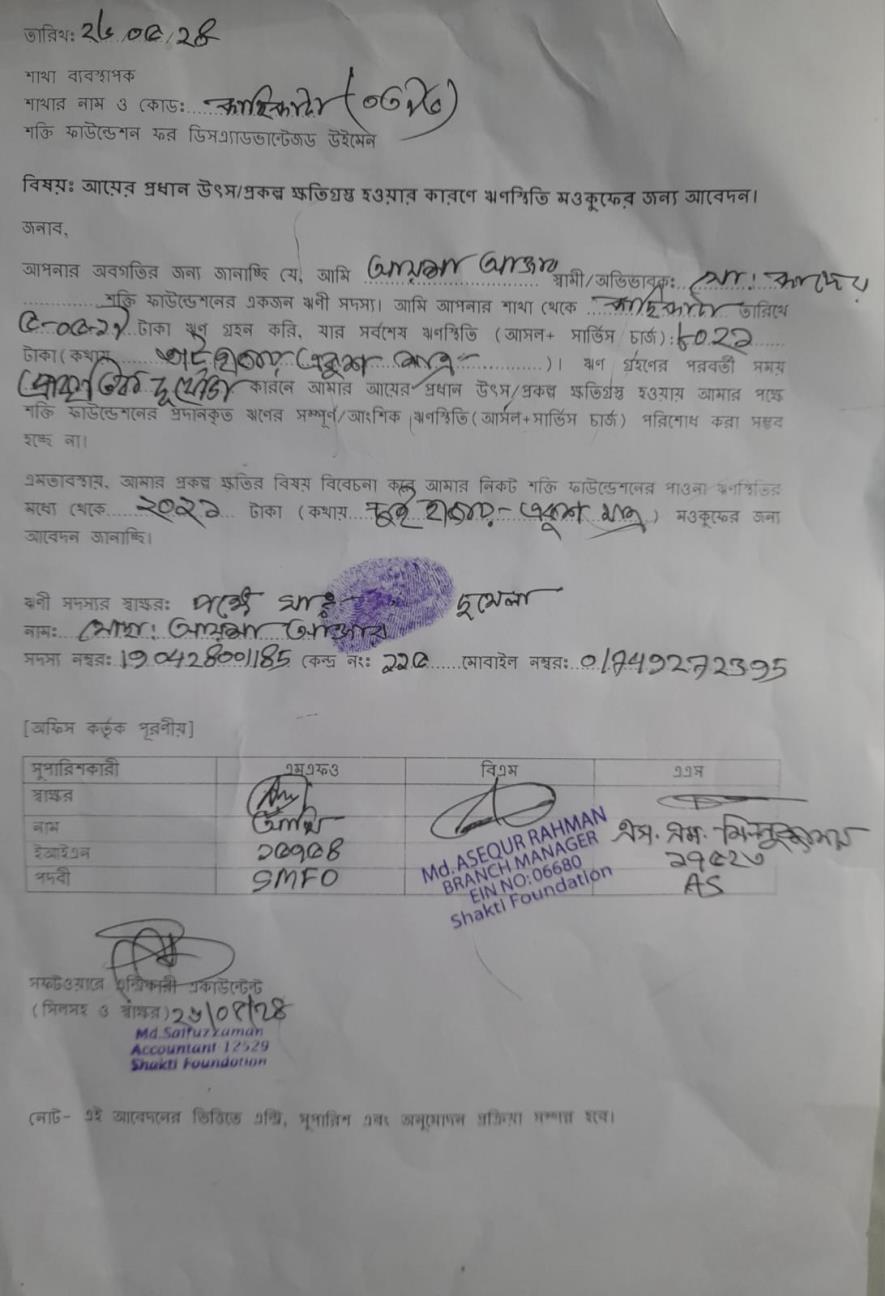 তারিখ: ২৬/০৫/২৪
শাখা ব্যবস্থাপক
শাখার নাম ও কোড:
শক্তি ফাউন্ডেশন ফর ডিসএ্যাডভান্টেজড উইমেন
বিষয়ঃ আয়ের প্রধান উৎস/প্রকল্প ক্ষতিগ্রস্থ হওয়ার কারণে ঋণস্থিতি মওকুফের জন্য আবেদন।
জনাব,
আপনার অবগতির জন্য জানাচ্ছি যে, আমি আয়েশা আক্তার স্বামী/অভিভাবক: মো: কাদের
শক্তি ফাউন্ডেশনের একজন ঋণী সদস্য। আমি আপনার শাখা থেকে তারিখে
টাকা ঋণ গ্রহন করি, যার সর্বশেষ ঋণস্থিতি (আসল+ সার্ভিস চার্জ): ৮০২১
টাকা(কথায় আট হাজার একুশ মাত্র)। ঋণ গ্রহণের পরবর্তী সময়
প্রাকৃতিক দূর্যোগ কারনে আমার আয়ের প্রধান উৎস/প্রকল্প ক্ষতিগ্রস্থ হওয়ায় আমার পক্ষে
শক্তি ফাউন্ডেশনের প্রদানকৃত ঋণের সম্পূর্ণ/আংশিক ঋণস্থিতি(আসল+সার্ভিস চার্জ) পরিশোধ করা সম্ভব
হচ্ছে না।
এমতাবস্থায়, আমার প্রকল্প ক্ষতির বিষয় বিবেচনা করে আমার নিকট শক্তি ফাউন্ডেশনের পাওনা ঋণস্থিতির
মধ্যে থেকে ২০২১ টাকা (কথায় দুই হাজার- একুশ মাত্র) মওকুফের জন্য
আবেদন জানাচ্ছি।
ঋণী সদস্যর স্বাক্ষর:
নাম: মোছা: আয়েশা আক্তার
সদস্য নম্বর: 190428001185 কেন্দ্র নং: ২২৫ মোবাইল নম্বর: 01749272395
[অফিস কর্তৃক পূরনীয়]
সুপারিশকারী এমএফও বিএম এএস
স্বাক্ষর
নাম
ইআইএন
পদবী SMFO AS
Md. ASEQUR RAHMAN
BRANCH MANAGER
EIN NO: 06680
Shakti Foundation
সফটওয়্যারে এন্ট্রিকারী একাউন্টেন্ট
(সিলসহ ও স্বাক্ষর)
Md.Saifuzzaman
Accountant 12529
Shakti Foundation
নোট- এই আবেদনের ভিত্তিতে এন্ট্রি, সুপারিশ এবং অনুমোদন প্রক্রিয়া সম্পন্ন হবে।